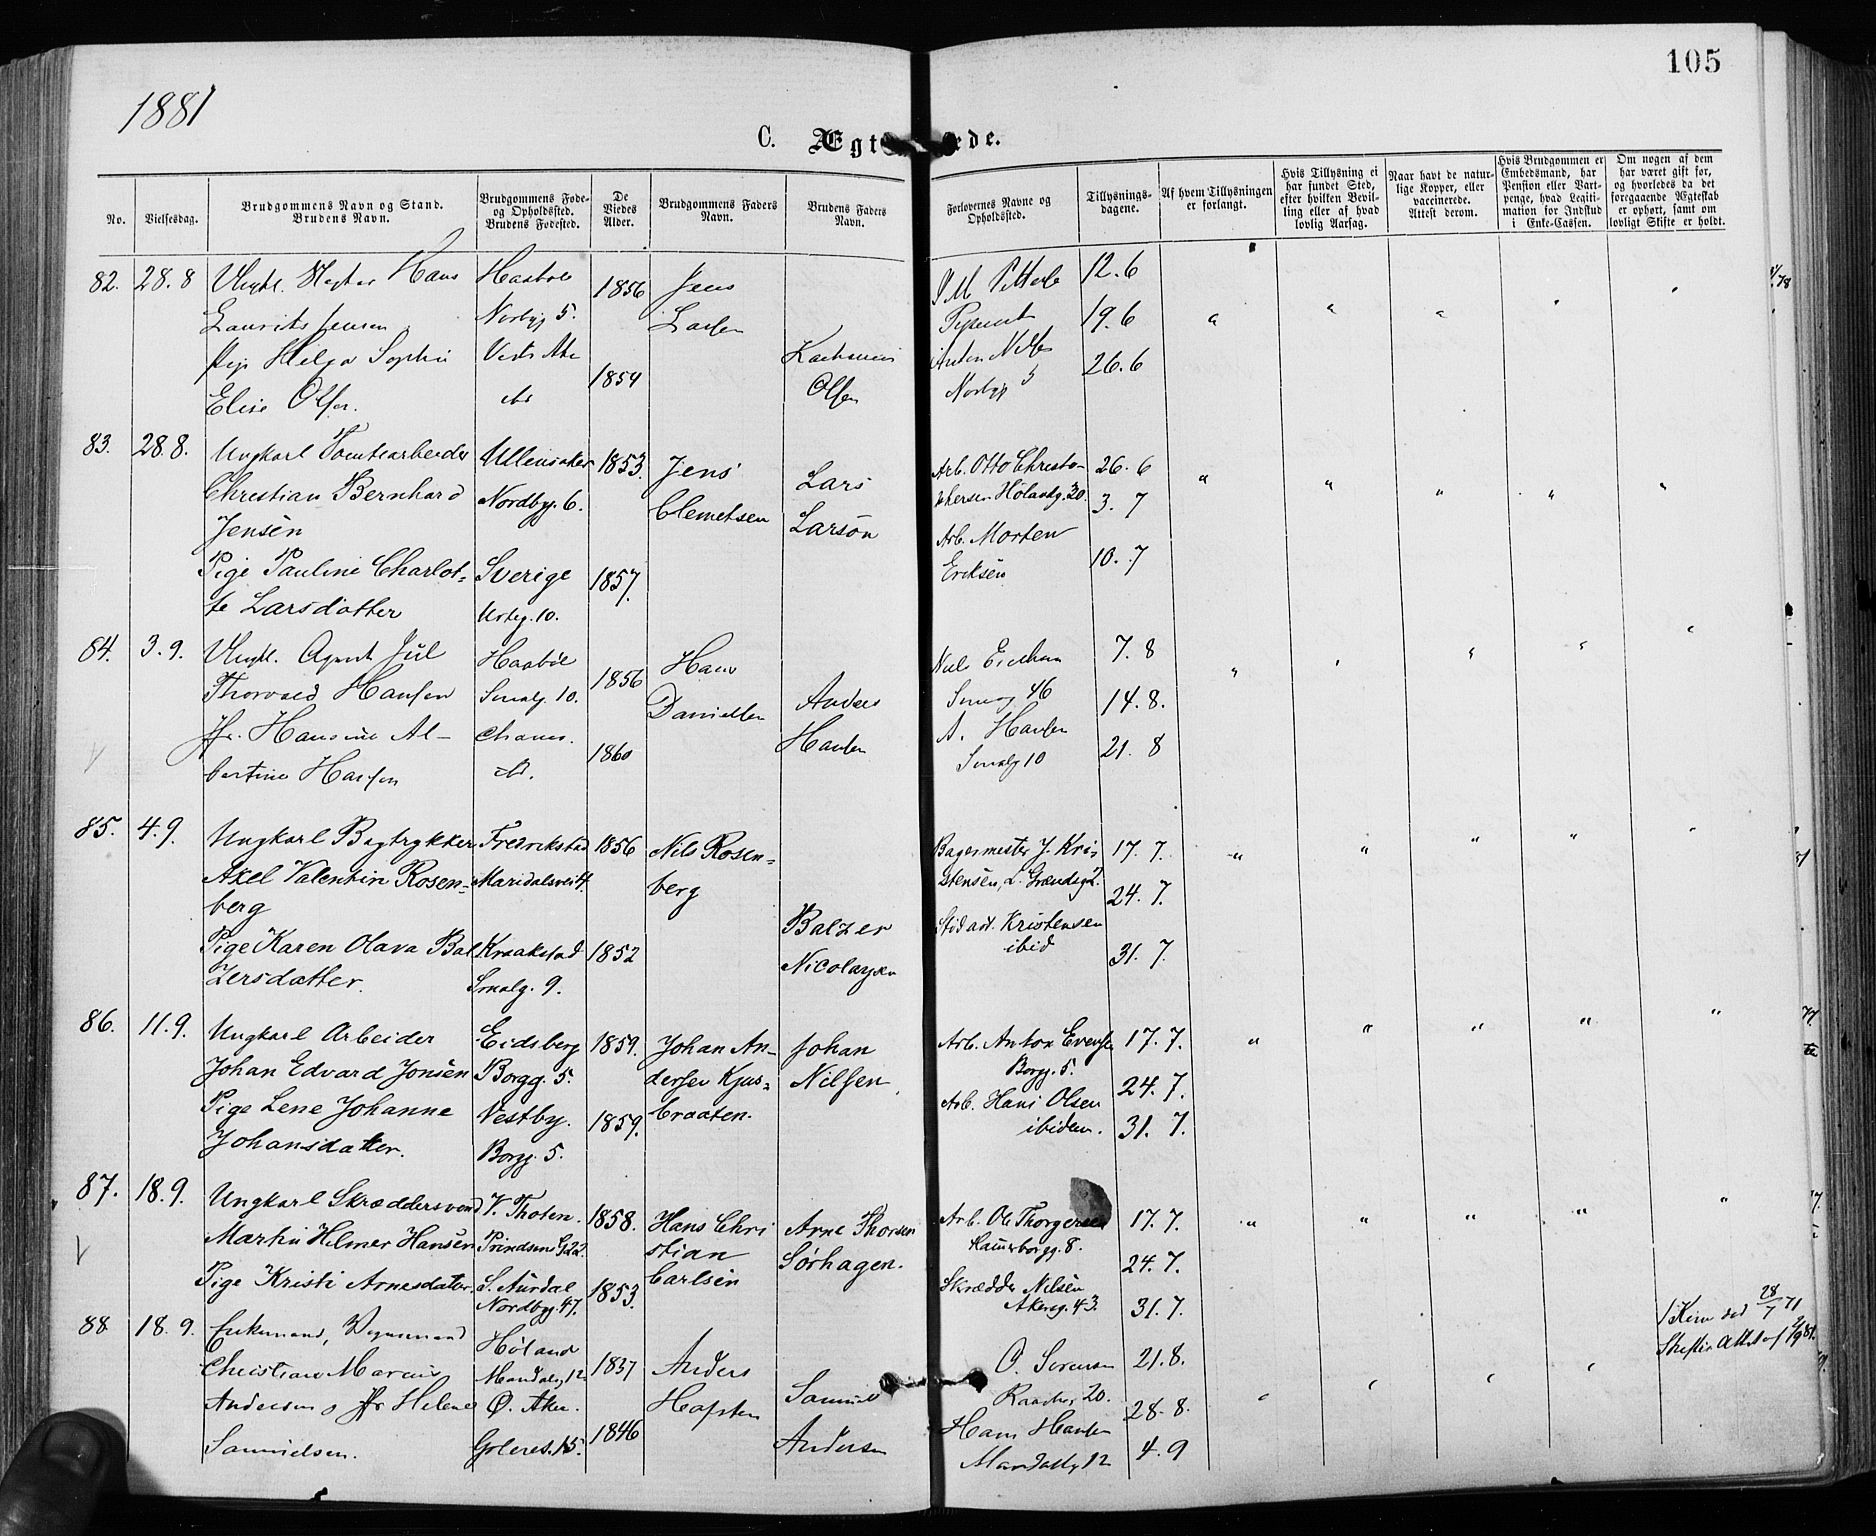 105
1881
C. Ægt ede.
No.
Vielsesdag.
Brudgommens Navn og Stand.
Brudens Navn.
Brudgommens Føde-
og Opholdssted.
Brudens Fødested.
De
Viedes
Alder.
Brudgommens Faders
Navn.
Brudens Faders
Navn.
Forlovernes Navne og
Opholdssted.
Tillysnings-
dagene.
Af hvem Tillysningen
er forlangt.
Hvis Tillysning ei
har fundet Sted,
efter hvilken Bevil-
ling eller af hvad
lovlig Aarsag.
Naar havt de natur-
lige Kopper, eller
vaccinerede.
Attest derom.
Hvis Brudgommen er
Embedsmand, har
Pension eller Vart-
penge, hvad Legiti-
mation for Indskud
i Enke-Cassen.
Om nogen af dem
har været gift før,
og hvorledes da det
foregaaende Ægteskab
er ophørt, samt om
lovligt Skifte er holdt.
82. 28.8 Ungk. Hans Haabøl 1856 Jens 12.6
Laurits Jensen Norbyg 5. Larsen 19.6
Pige Helga Sophie 1854 26.6
Elise Olsen. Olsen Norbyg 5
83. 28.8. Ungkarl Tomtearbeider Ullensaker 1853. Jens Lars Arb. Otto Christo- 26.6
Christian Bernhard Nordbyg. 6. Clemetsen Larson Hølandg. 20. 3.7
Jensen Arb. Morten
Pige Pauline Charlot- Sverige 1857. Eriksen 10.7
te Larsdatter Urteg. 10.
84. 3.9. Ungk. Agent Jul Haabøl 1856 Hans Niels 7.8
Thorvald Hansen Smalg 10. Danielsen Anders 46 14.8.
Jfr. Hansine Al- 1860 Hansen A. Hansen 21.8
bertine Hansen Smalg 10
85. 4.9. Ungkarl Bogtrykker Fredrikstad 1856 Nils Rosen- Bagermester J. Kri 17.7.
Axel Valentin Rosen- Maridalsvei 4. berg stensen, L. Grændsg 2. 24.7.
berg Balzer Kristensen
Pige Karen Olava Bal Kraakstad 1852 Nicolaysen ibid 31.7.
zersdatter. Smalg. 9.
86. 11.9. Ungkarl Arbeider Eidsberg 1859. Johan An- Johan Arb. Anton Evensen 17.7.
Johan Edvard Jonsen Borgg. 5. dersen Kjus- Nilsen Borgg. 5. 24.7.
Pige Lene Johanne Vestby. 1859. braaten. Arb. Hans Olsen 31.7.
Johansdatter. Borgg. 5. ibidem.
87. 18.9. Ungkarl Skræddersvend V. Thoten. 1858. Hans Chri Arne Thorsen Arb. Ole Thorgersen 17.7.
Martin Hilmer Hansen Prindsens G 22. stian Sørhagen. Hammerborgg. 8. 24.7.
Pige Kristi Arnesdatter. S. Aurdal 1853. Carlsen Skrædder Nilsen 31.7.
Nordbyg. 47. Akersg. 43.
88. 18.9. Enkemand, Vognmand Høland 1837 Anders O. Sørensen 21.8.
Christian Marcus Samuel 20. 28.8.
Andersen Jfr Helene Ø. Aker. Andersen Hans Hansen 4.9
Samuelsen. 1846 12
28/7 71